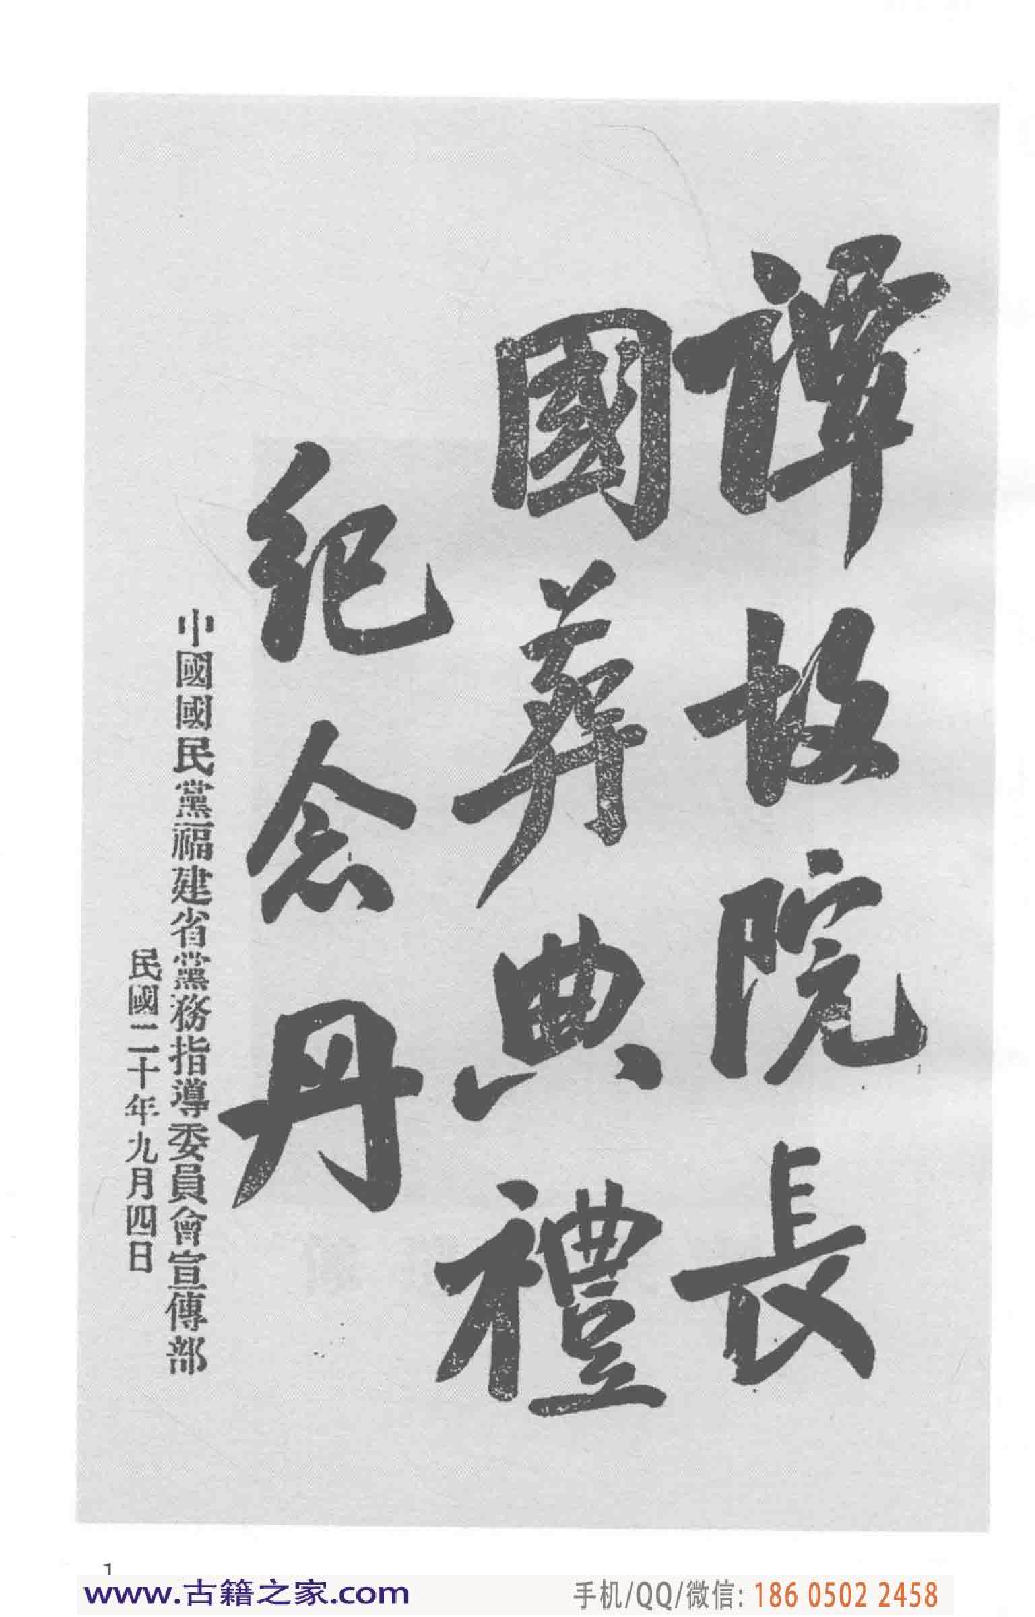 譚故院長
國葬典禮
紀念冊
中國國民黨福建省黨務指導委員會宣傳部
民國二十年九月四日
1
www.古籍之家.com
手机/QQ/微信: 186 0502 2458